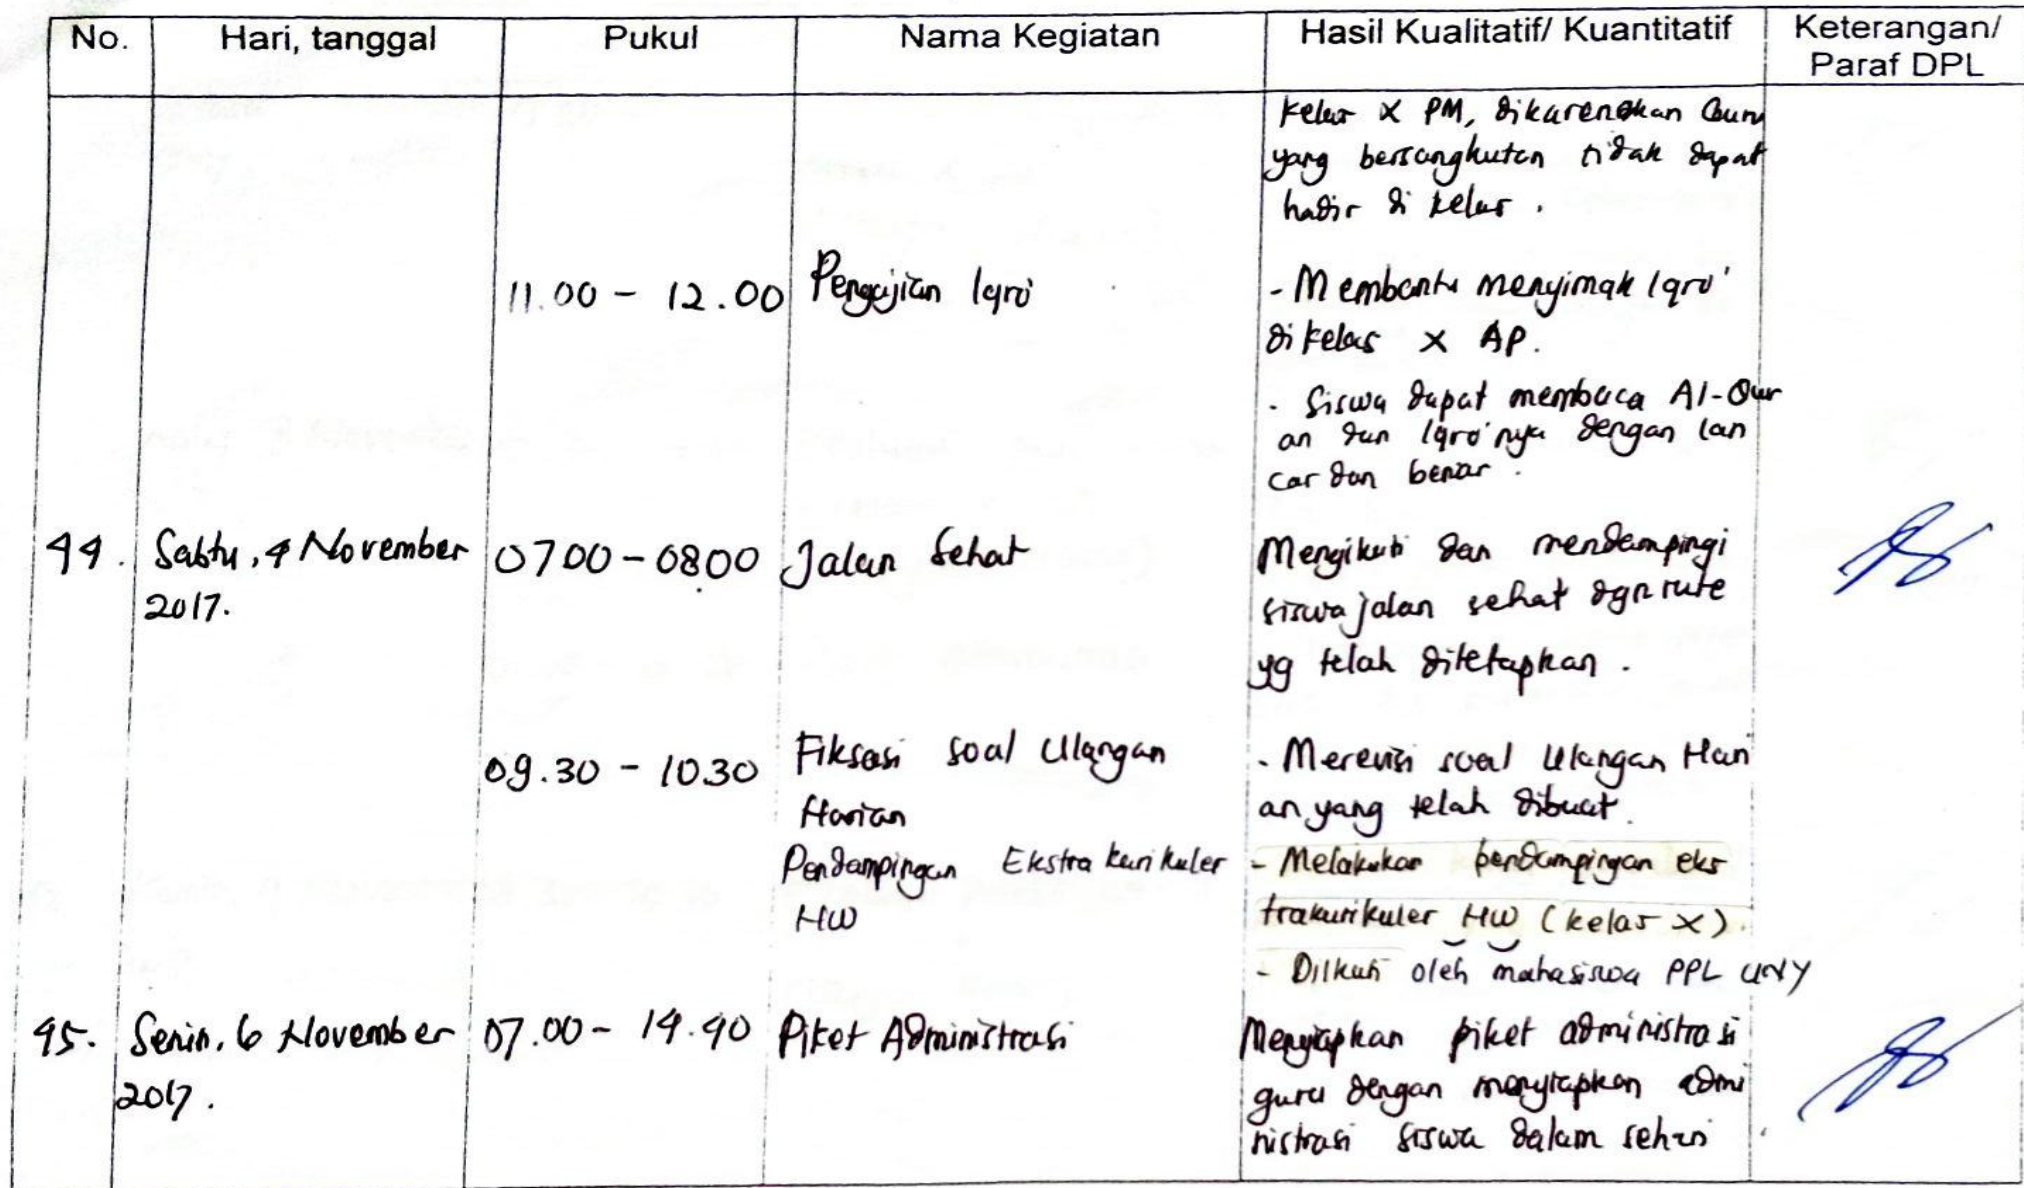 No. Hari, tanggal Pukul Nama Kegiatan Hasil Kualitatif/ Kuantitatif Keterangan/
Paraf DPL
Kelas X PM, dikarenakan Guru
yang bersangkutan tidak dapat
hadir di kelas.
11.00 - 12.00 Pengajian Iqro' - Membantu menyimak Iqro'
di kelas X AP.
- Siswa dapat membaca Al-Qur
an dan Iqro'nya dengan lan
car dan benar.
44. Sabtu, 4 November 07 00 - 08 00 Jalan Sehat Mengikuti dan mendampingi
2017. siswa jalan sehat dgn rute
yg telah ditetapkan.
09.30 - 10 30 Fiksasi soal Ulangan - Merevisi soal Ulangan Hari
Harian an yang telah dibuat.
Pendampingan Ekstra kurikuler - Melakukan pendampingan eks
HW trakurikuler HW (kelas X).
- Diikuti oleh mahasiswa PPL UNY
45. Senin, 6 November 07.00 - 14.40 Piket Administrasi Menyiapkan piket administrasi
2017. guru dengan menyiapkan admi
nistrasi siswa dalam sehari